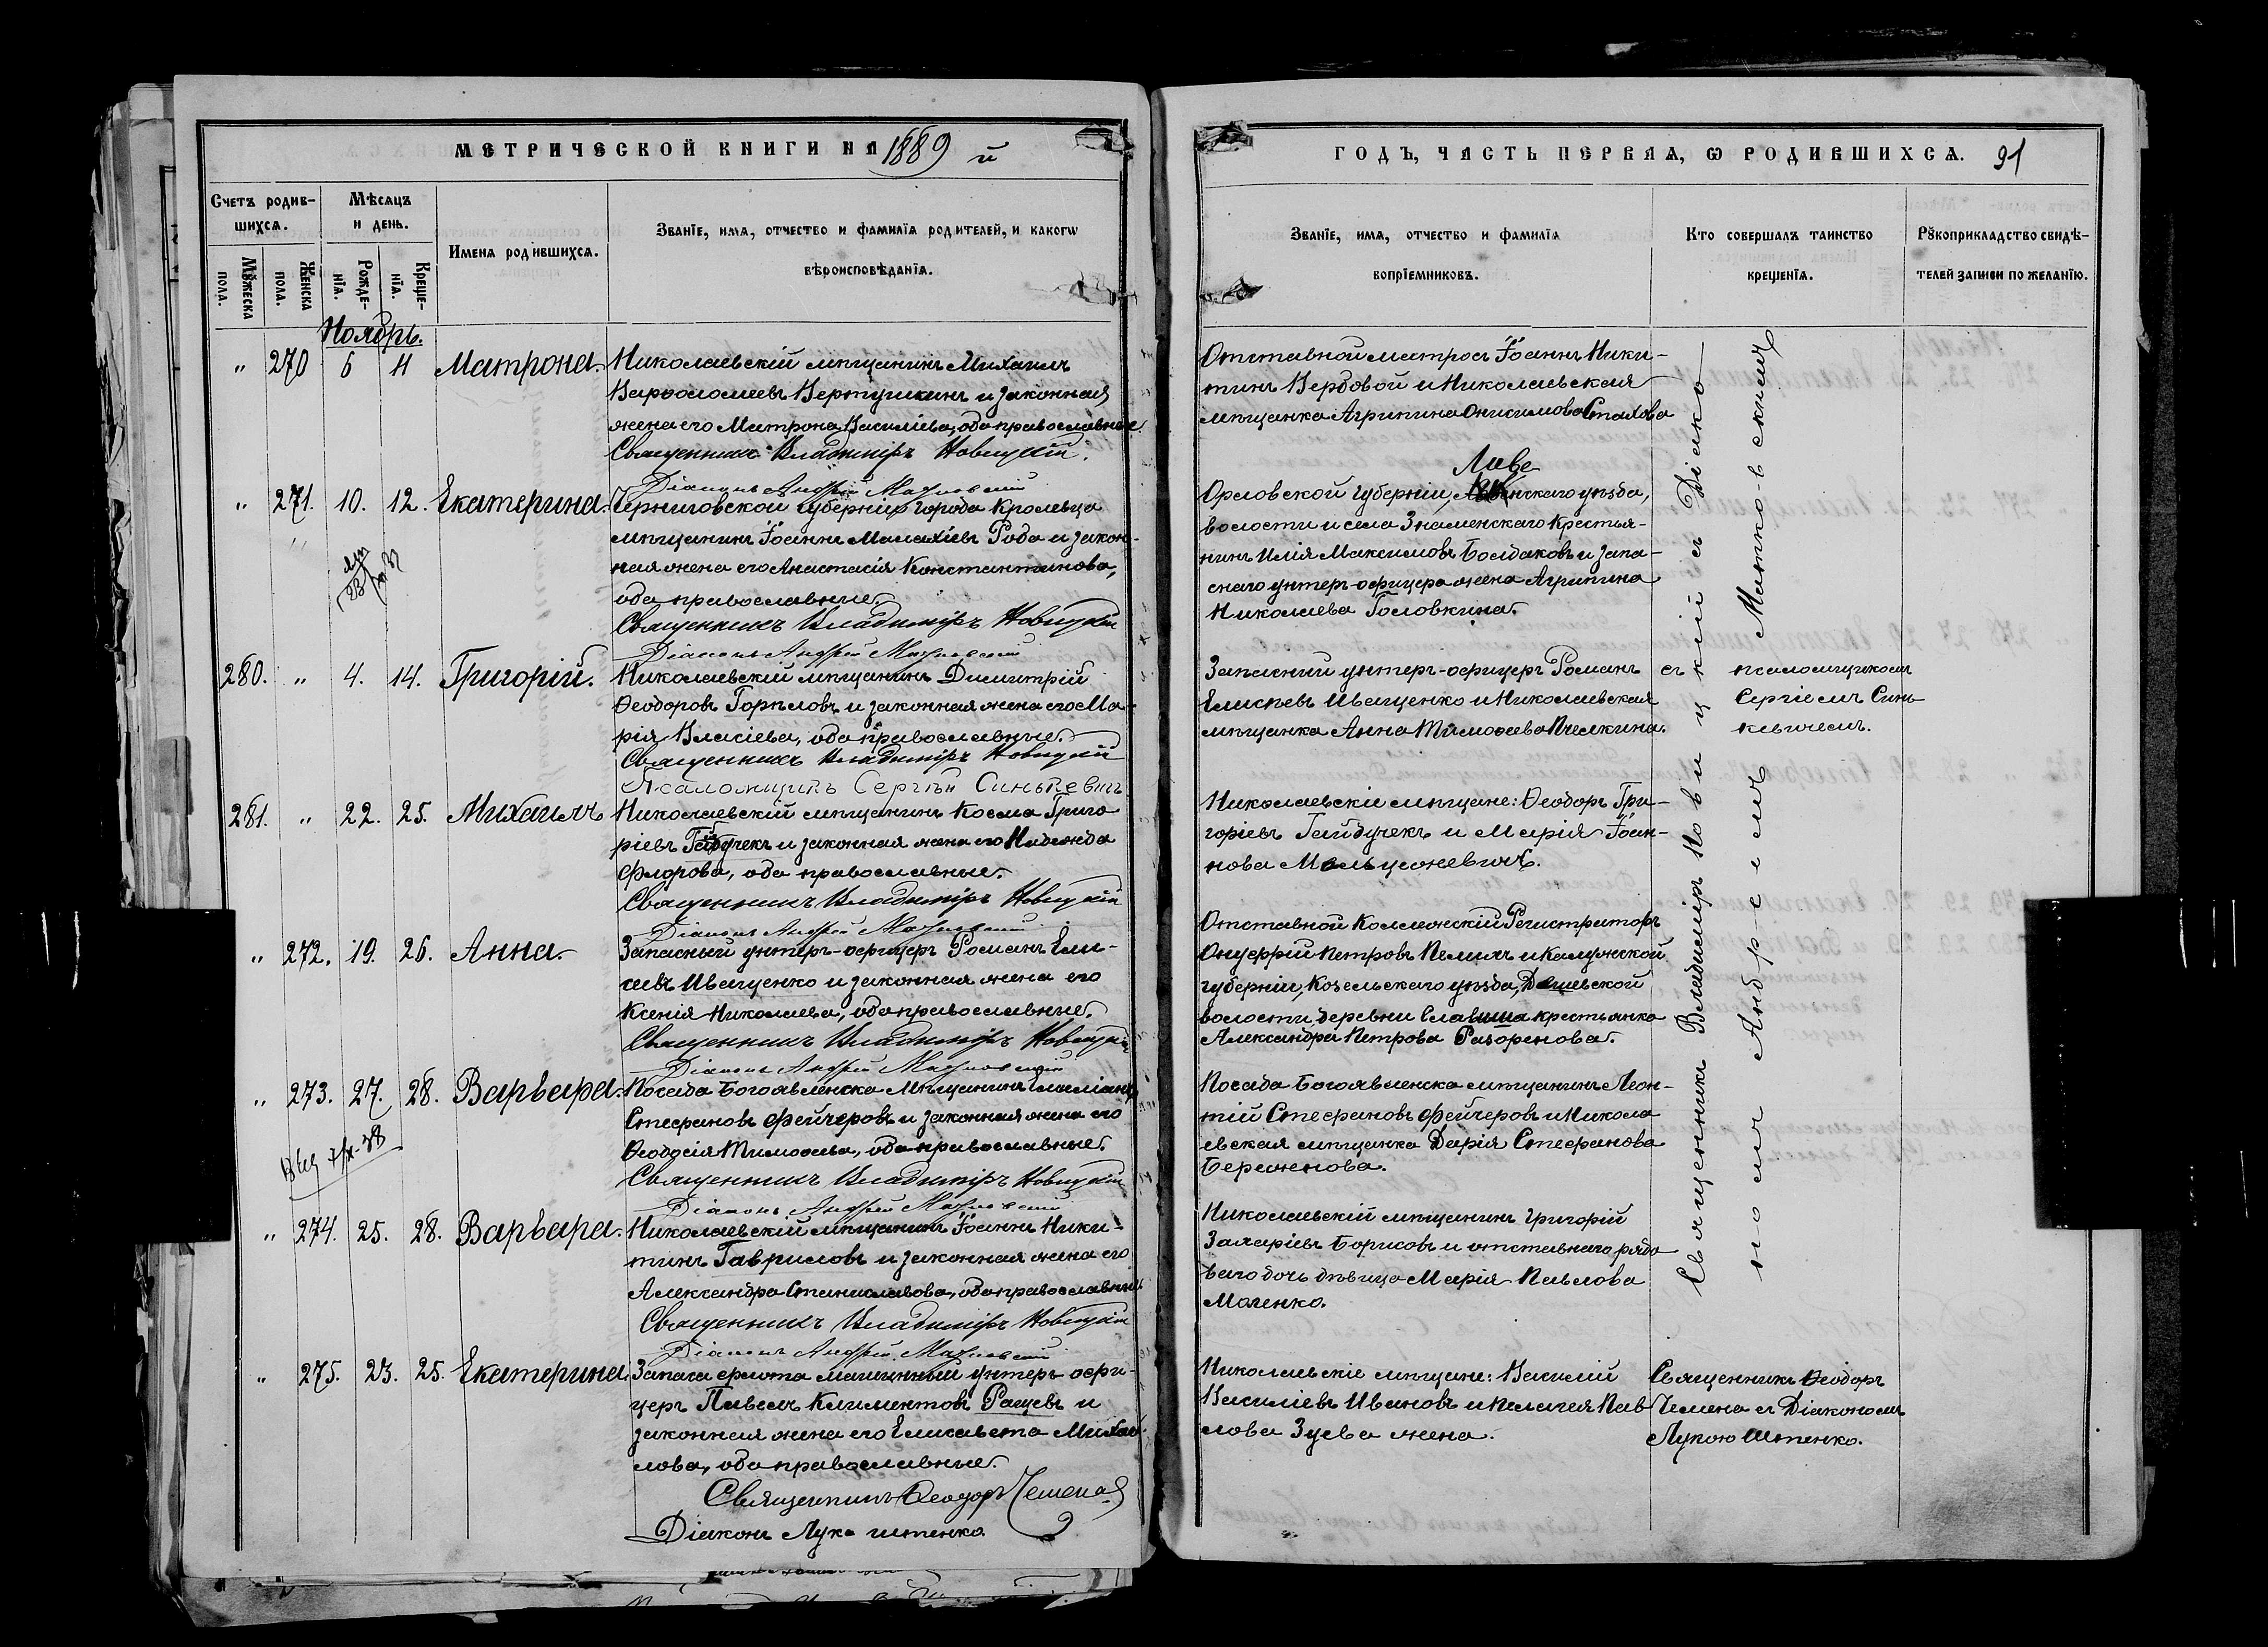 МЕТРИЧЕСКОЙ КНИГИ НА 1889 й
Счетъ родив-
шихся.
Мѣсяцъ
и день.
Имена родившихся.
Званіе, имя, отчество и фамилія родителей, и какогѡ
вѣроисповѣданія.
Мꙋжеска
пола.
Женска
пола.
Рожде-
нія.
Креще-
нія.
Ноябрь.
„ 270 6 11 Матрона.
Николаевскій мѣщанинъ Михаилъ
Варѳоломеевъ Вертушкинъ и законная
жена его Матрона Василіева, оба православные.
Священникъ Владиміръ Новицкій.
Діаконъ Андрей
„ 271. 10. 12. Екатерина.
Черниговской губерніи города Кролевца
мѣщанинъ Іоаннъ Малахіевъ Рода и закон-
ная жена его Анастасія Константинова,
оба православные.
Священникъ Владиміръ Новицкій
Діаконъ Андрей
280. „ 4. 14. Григорій.
Николаевскій мѣщанинъ Димитрій
Ѳеодоровъ Горѣловъ и законная жена его Ма-
рія Власіева, оба православные.
Священникъ Владиміръ Новицкій
Псаломщикъ Сергѣй Синькевичъ
281. „ 22. 25. Михаилъ
Николаевскій мѣщанинъ Косма Григо-
ріевъ Гайдучекъ и законная жена его Надежда
Флорова, оба православные.
Священникъ Владиміръ Новицкій
Діаконъ Андрей
„ 272. 19. 26. Анна.
Запасный унтеръ-офицеръ Романъ Ели-
сеевъ Иващенко и законная жена его
Ксенія Николаева, оба православные.
Священникъ Владиміръ Новицкій
Діаконъ Андрей
„ 273. 27. 28. Варвара.
Посада Богоявленска мѣщанинъ
Стефановъ Фейчеровъ и законная жена его
Ѳеодосія Тимоѳеева, оба православные.
Священникъ Владиміръ Новицкій
Діаконъ Андрей
„ 274. 25. 28. Варвара.
Николаевскій мѣщанинъ Іоаннъ Ники-
тинъ Гавриловъ и законная жена его
Александра Станиславова, оба православные.
Священникъ Владиміръ Новицкій
Діаконъ Андрей
„ 275. 23. 25. Екатерина.
Запаса флота машинный унтеръ-офи-
церъ Павелъ Климентовъ Ращевъ и
законная жена его Елисавета Михаи-
лова, оба православные.
Священникъ Ѳеодоръ Чемена
Діаконъ Лука Штенко
ГОДЪ, ЧАСТЬ ПЕРВАЯ, Ѡ РОДИВШИХСЯ. 91
Званіе, имя, отчество и фамилія
воспріемниковъ.
Кто совершалъ таинство
крещенія.
Рꙋкоприкладство свидѣ-
телей записи по желанію.
Отставной матросъ Іоаннъ Ники-
тинъ Вербовой и Николаевская
мѣщанка Агрипина Онисимова Стахова
Ливе
Орловской губерніи, нскаго уѣзда,
волости и села Знаменскаго крестья-
нинъ Илія Максимовъ Болдаковъ и запа-
снаго унтеръ-офицера жена Агрипина
Николаева Головкина.
Запасный унтеръ-офицеръ Романъ
Елисеевъ Иващенко и Николаевская
мѣщанка Анна Тимоѳеева Пчелкина.
Николаевскіе мѣщане: Ѳеодоръ Гри-
горіевъ Гайдучекъ и Марія Іоан-
нова Мальцожевичъ.
Отставной Коллежскій Регистраторъ
Онуфрій Петровъ Пелихъ и Калужской
губерніи, Козельскаго уѣзда,
волости, деревни крестьянка
Александра Петрова Разоренова.
Посада Богоявленска мѣщанинъ Леон-
тій Стефановъ Фейчеровъ и Никола-
евская мѣщанка Дарія Стефанова
Береженова.
Николаевскій мѣщанинъ Григорій
Захаріевъ Борисовъ и отставнаго рядо-
ваго дочь дѣвица Марія Павлова
Маченко.
Николаевскіе мѣщане: Василій
Василіевъ Ивановъ и Пелагея Пав-
лова Зуева жена.
Священникъ Владиміръ Новицкій съ Діако-
номъ Андреемъ
съ псаломщикомъ
Сергіемъ Синь-
кевичемъ.
Священникъ Ѳеодоръ
Чемена съ Діакономъ
Лукою Штенко.